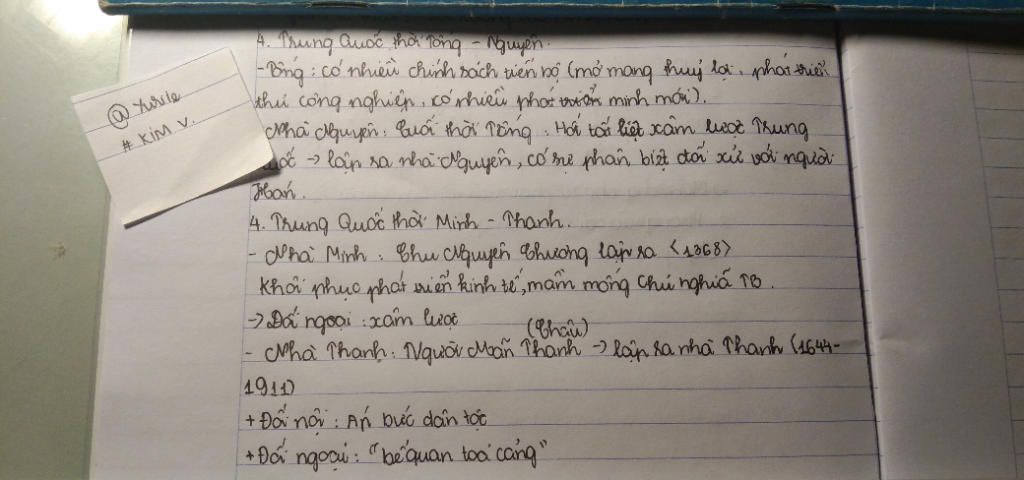 4. Trung Quốc thời Tống - Nguyên.
- Tống : có nhiều chính sách tiến bộ (mở mang thuỷ lợi, phát triển
thủ công nghiệp, có nhiều phát triển minh mới).
Nhà Nguyên : Cuối thời Tống, Hốt tất liệt xâm lược Trung
uốc → lập ra nhà Nguyên, có sự phân biệt đối xử với người
Hán.
4. Trung Quốc thời Minh - Thanh.
- Nhà Minh : Chu Nguyên Chương lập ra <1368>
Khôi phục phát triển kinh tế, mầm mống Chủ nghĩa TB.
→ Đối ngoại : xâm lược
(Châu)
- Nhà Thanh : Người Mãn Thanh → lập ra nhà Thanh (1644-
1911)
+ Đối nội : Áp bức dân tộc
+ Đối ngoại : "bế quan toả cảng"
@ Xuxile
# KIM V.